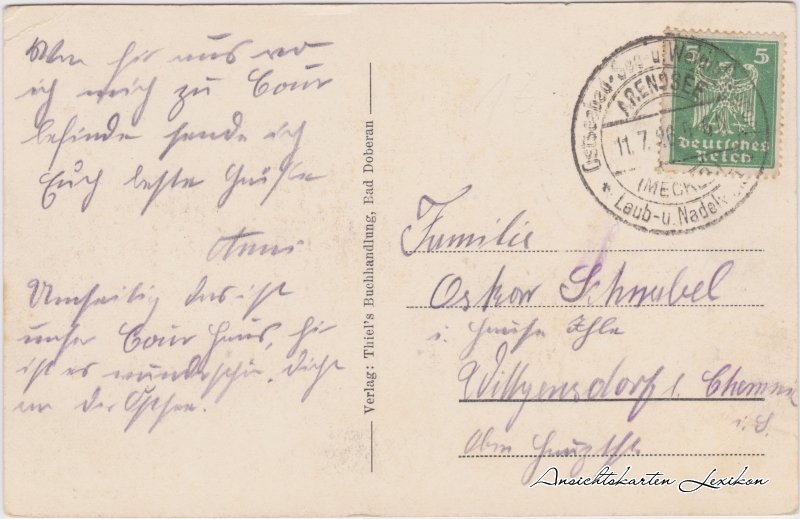 Von hir aus wo
ich mich zu Cour
befinde sende ich
Euch beste Grüße
Anni
Umseitig das ist
unser Cour Haus, hir
ist es wunderschön. Dicht
an der Ostsee.
Verlag: Thiel's Buchhandlung, Bad Doberan
Ostseebad
ARENDSEE
11.7.26
(MECKL
* Laub-u. Nadel
5 5
Deutsches
Reich
Familie
Oskar Schnabel
i. Hause Ihle
Wittgensdorf b. Chemni
i. S.
Ansichtskarten Lexikon